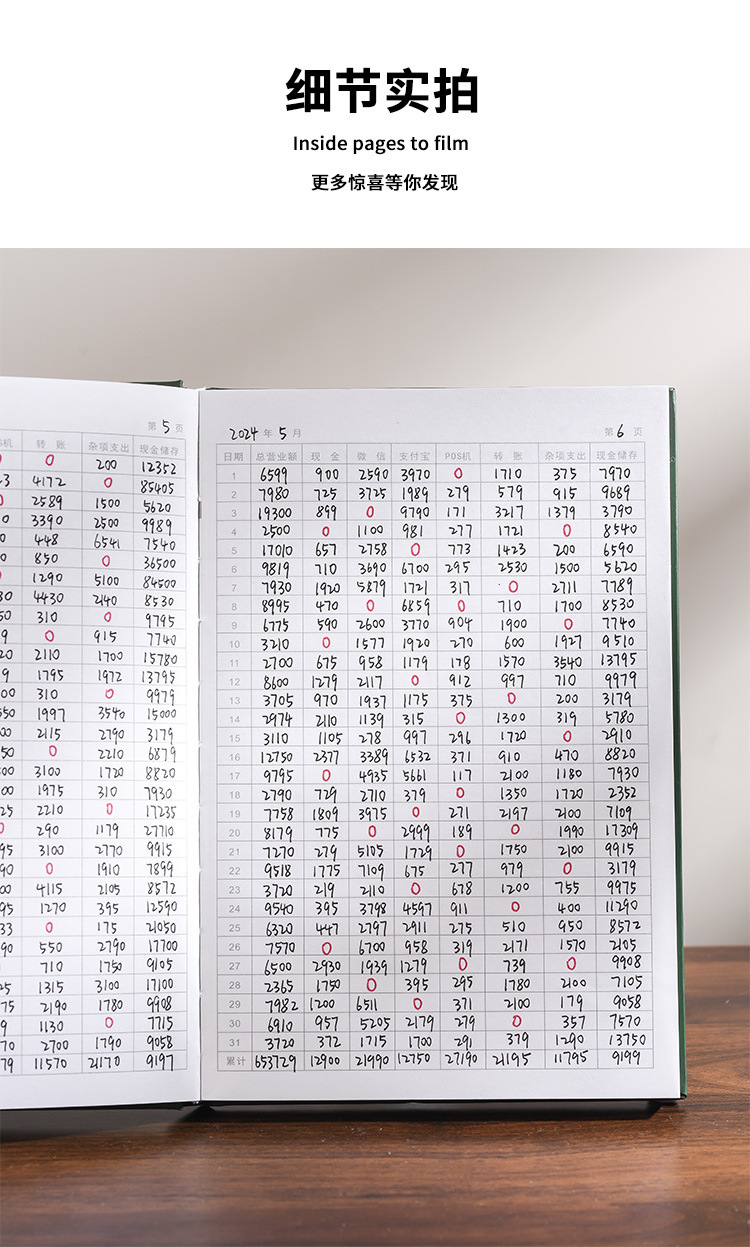 细节实拍
Inside pages to film
更多惊喜等你发现
第 5 页
转 账 杂项支出 现金储存
0 200 12352
4172 0 85405
2589 1500 5620
3390 2500 9989
448 6541 7540
850 0 36500
1290 5100 84500
4430 2140 8530
310 0 9795
0 915 7740
2110 1700 15780
1795 1972 13795
310 0 9979
1997 3540 15000
2115 2790 3179
0 2210 6879
3100 1720 8820
1975 310 7930
2210 0 17235
290 1179 27710
3100 2770 9915
0 1910 7899
4115 2105 8572
1270 395 12590
0 175 21050
550 2790 17700
710 1750 9105
1315 3100 17100
2190 1780 9908
1130 0 7715
2700 1790 9058
11570 21170 9197
2024 年 5 月 第 6 页
日期 总营业额 现 金 微 信 支付宝 POS机 转 账 杂项支出 现金储存
1 6599 900 2590 3970 0 1710 375 7970
2 7980 725 3725 1989 279 579 915 9689
3 19300 899 0 9790 171 3217 1379 3790
4 2500 0 1100 981 277 1721 0 8540
5 17010 657 2758 0 773 1423 200 6590
6 9819 710 3690 6700 295 2530 1500 5620
7 7930 1920 5879 1721 317 0 2711 7789
8 8995 470 0 6859 0 710 1700 8530
9 6775 590 2600 3770 904 1900 0 7740
10 3210 0 1577 1920 270 600 1927 9510
11 2700 675 958 1179 178 1570 3540 13795
12 8600 1279 2117 0 912 997 710 9979
13 3705 970 1937 1175 375 0 200 3179
14 2974 2110 1139 315 0 1300 319 5780
15 3110 1105 278 997 296 1720 0 2910
16 12750 2377 3389 6532 371 910 470 8820
17 9795 0 4935 5661 117 2100 1180 7930
18 2790 729 2710 379 0 1350 1720 2352
19 7758 1809 3975 0 271 2197 2100 7109
20 8179 775 0 2999 189 0 1990 17309
21 7270 279 5105 1729 0 1750 2100 9915
22 9518 1775 7109 675 277 979 0 3179
23 3720 219 2110 0 678 1200 755 9975
24 9540 395 3798 4597 911 0 400 11290
25 6320 447 2797 2911 275 510 950 8572
26 7570 0 6700 958 319 2171 1570 2105
27 6500 2930 1939 1279 0 739 0 9908
28 2365 1750 0 395 295 1780 2100 7105
29 7982 1200 6511 0 371 2100 179 9058
30 6910 957 5205 2179 279 0 357 7570
31 3720 372 1715 1700 291 379 1290 13750
累计 653729 12900 21990 12750 27190 21195 11795 9199